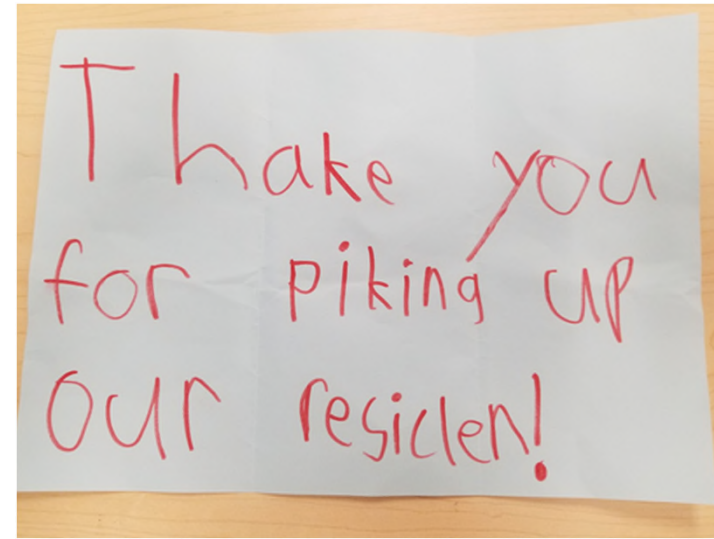 Thake you
for piking up
our resiclen!